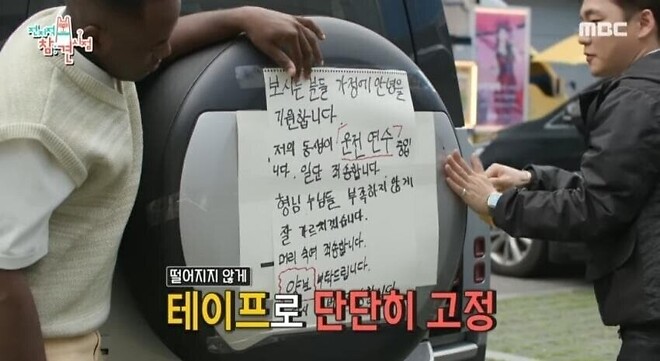 전지적 참견 시점
MBC
보시는 분들 가정에 안녕을
기원합니다
저의 동생이 "운전 연수" 중입
니다. 일단 죄송합니다.
형님 누님들 부족하지 않게
잘 가르치겠습니다.
머리 숙여 죄송합니다.
양보 부탁드립니다.
떨어지지 않게
테이프로 단단히 고정